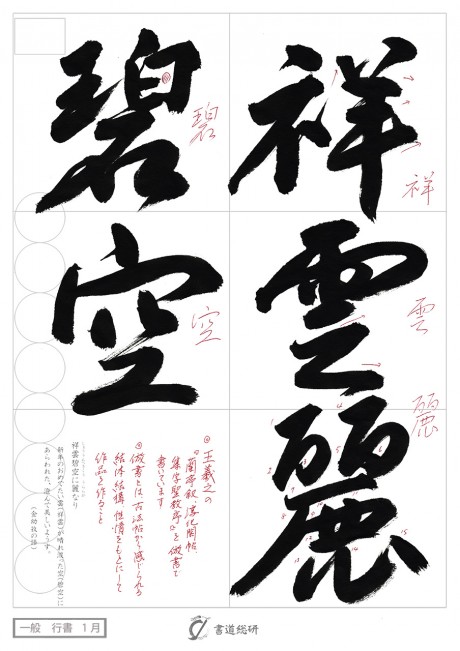 祥雲麗
碧空
祥
雲
麗
碧
空
◎王羲之の
『蘭亭叙、淳化閣帖、
集字聖教序』を倣書で
書いています。
◎倣書とは、古法帖から感じられる
結体、結構、性情をもとにして
作品を作ること
祥雲碧空に麗なり
新年のおめでたい雲(祥雲)が晴れ渡った空(碧空)に
あらわれた、澄んで美しいようす。
(金幼孜の語)
一般 行書 1月
書道総研